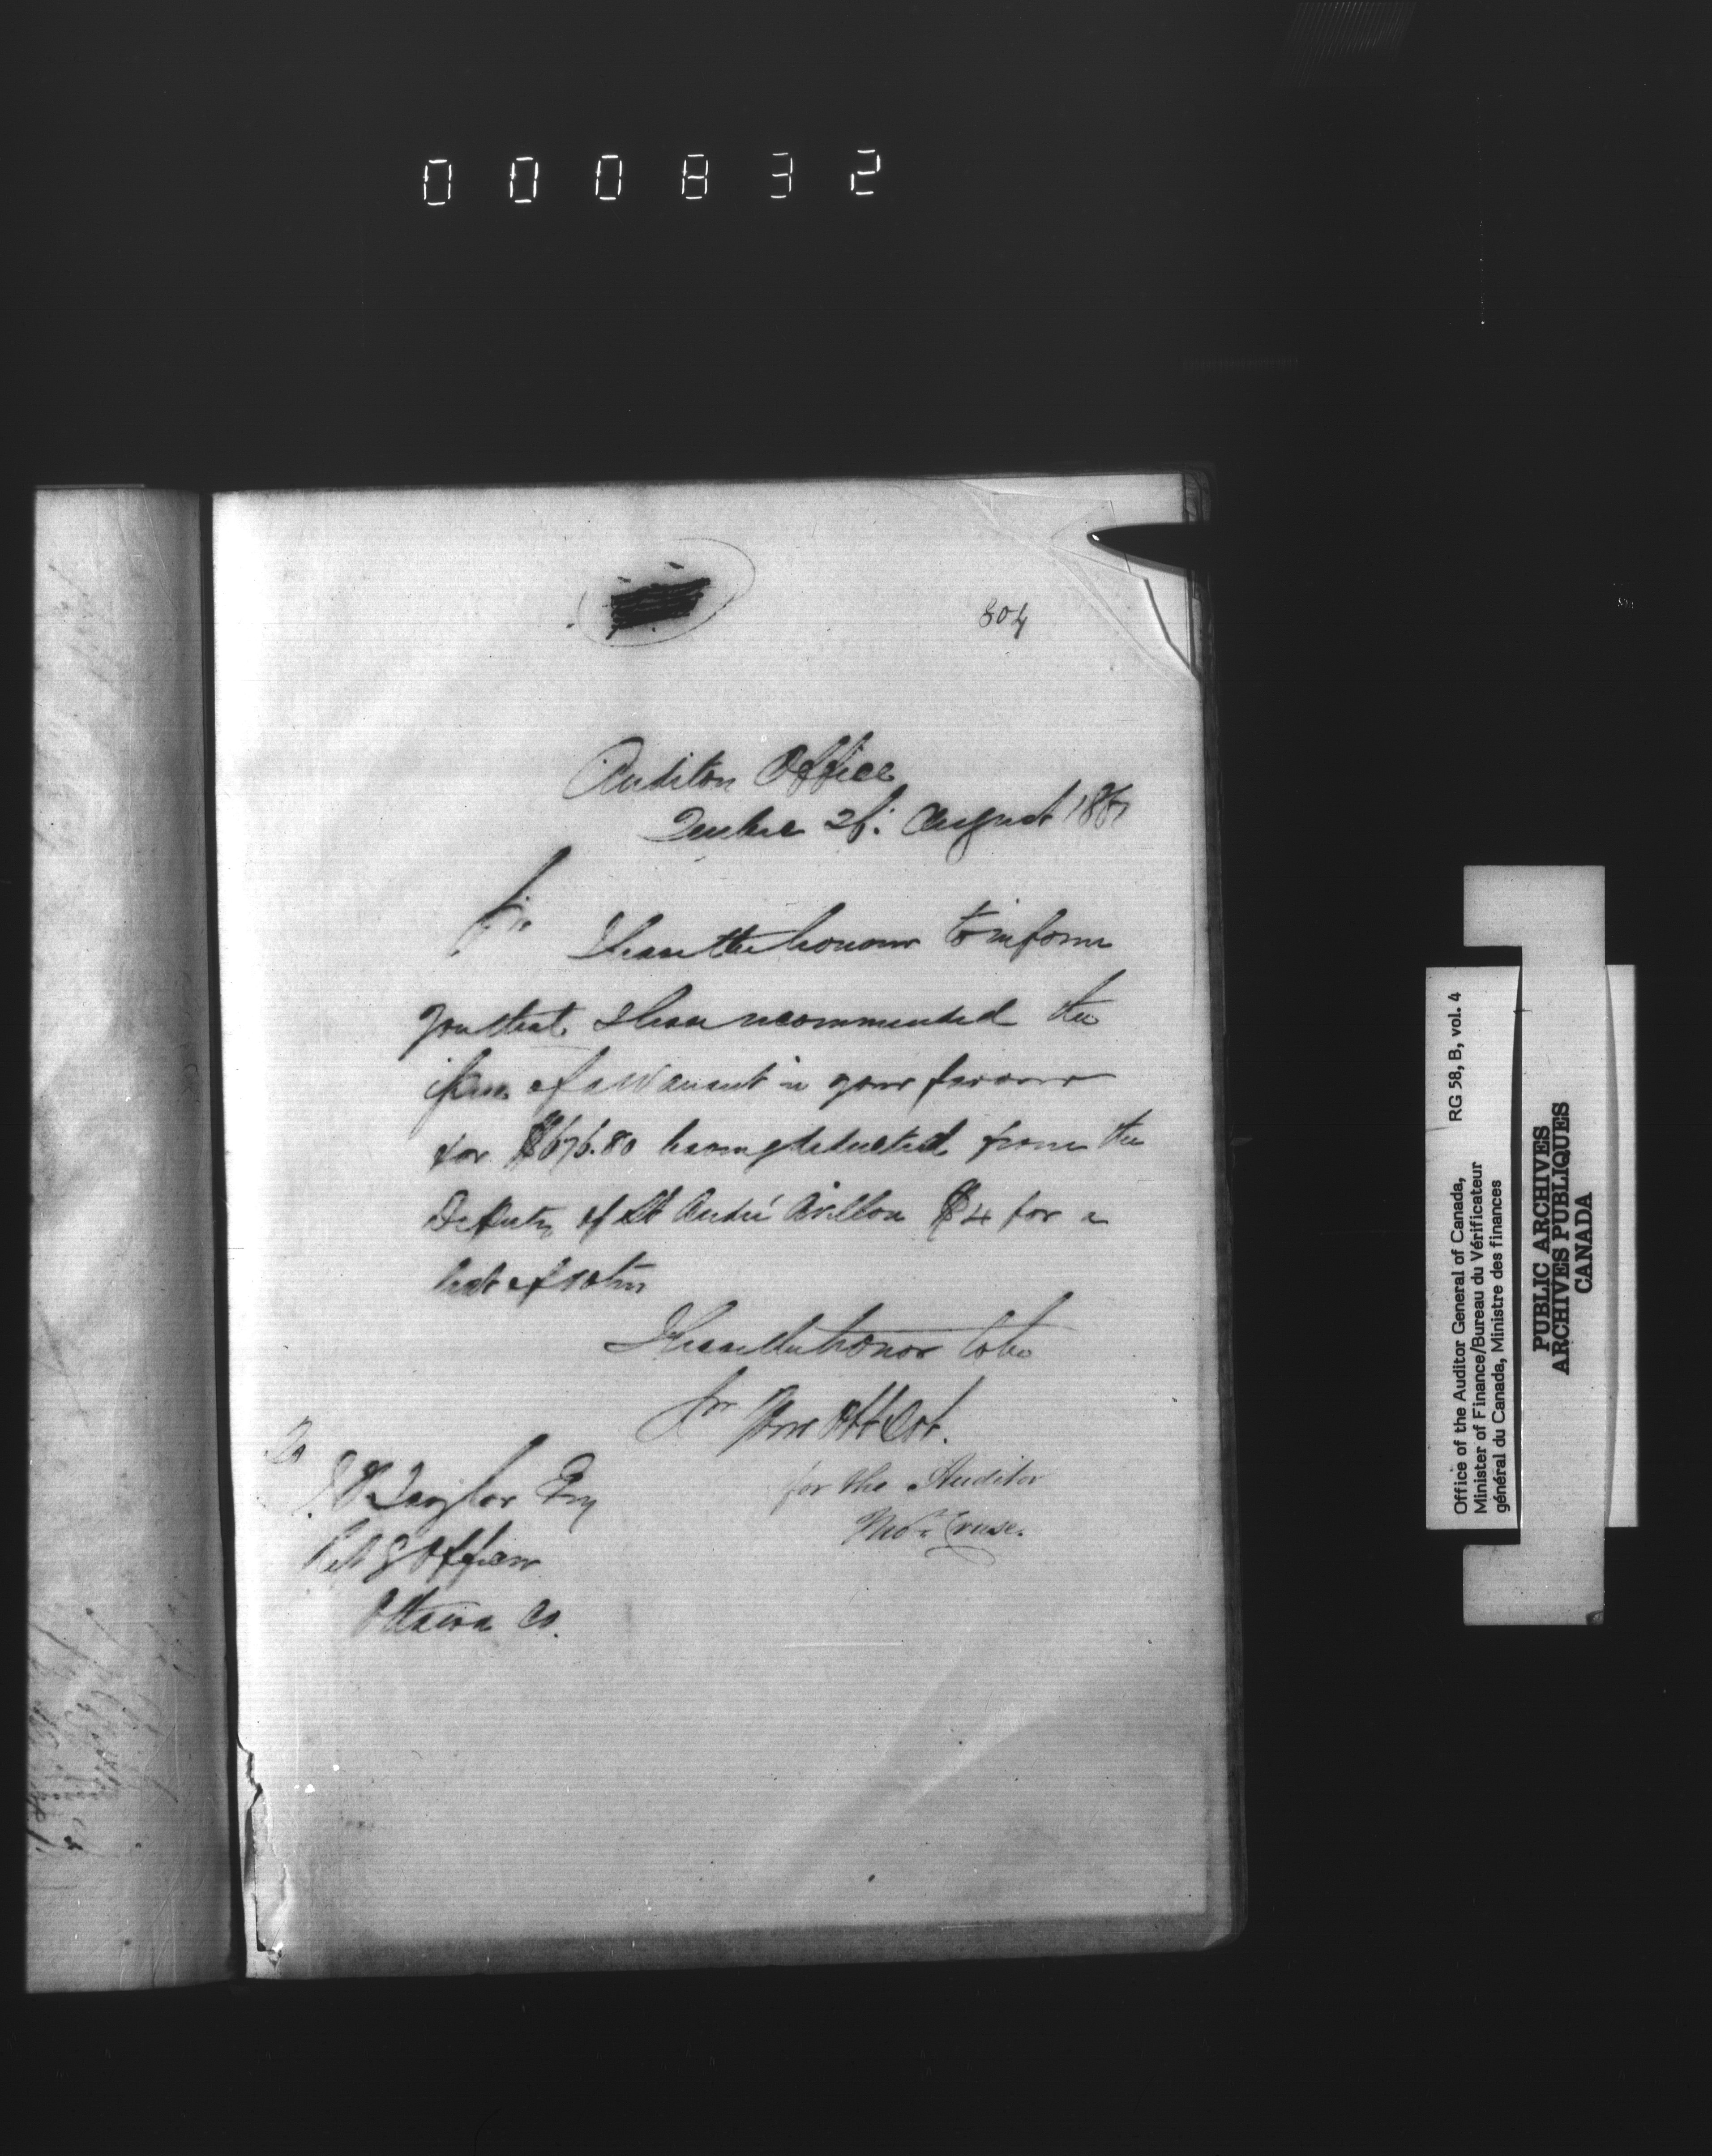 000832
804
Auditor Office
Quebec 26: August 1861
Sir
I have the honour to inform
you that I have recommended the
issue of a Warrant in your favour
for $676.80 having deducted from the
Deputy of St André Avellon $4 for a
list of voters
I have the honor to be
Sir Your Obt Svt.
for the Auditor
Cruse.
To
Taylor Esq
Retg Officer
Ottawa Co.
Office of the Auditor General of Canada, RG 58, B, vol. 4
Minister of Finance/Bureau du Vérificateur
général du Canada, Ministre des finances
PUBLIC ARCHIVES
ARCHIVES PUBLIQUES
CANADA